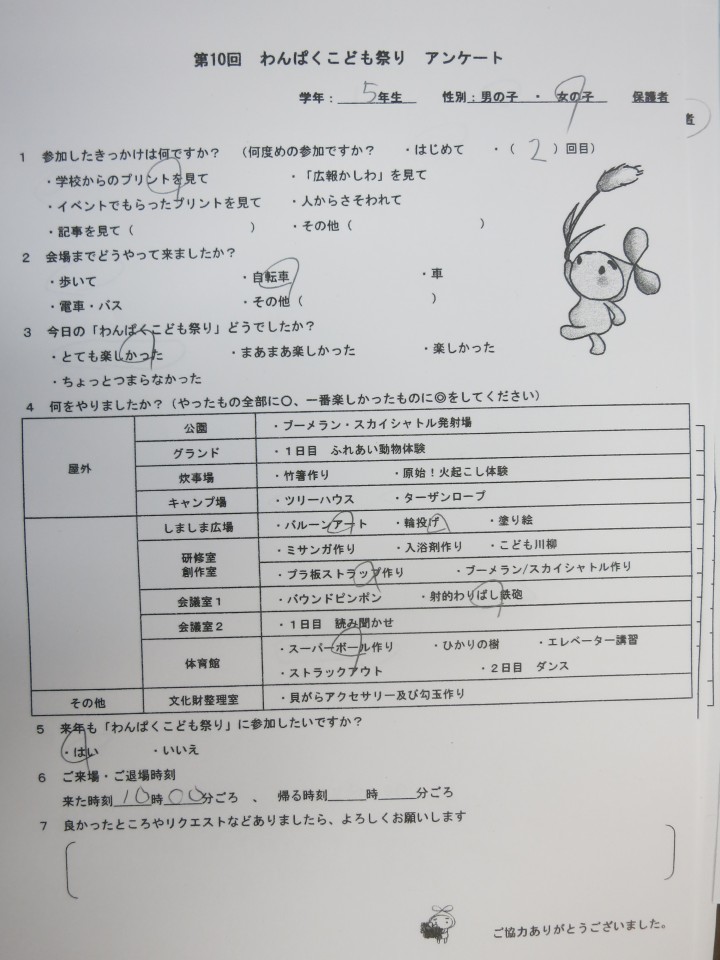 第10回　わんぱくこども祭り　アンケート
学年：　5年生　性別：男の子　・　女の子　保護者
者
1　参加したきっかけは何ですか？　（何度めの参加ですか？　・はじめて　・（　2　）回目）
・学校からのプリントを見て　・「広報かしわ」を見て
・イベントでもらったプリントを見て　・人からさそわれて
・記事を見て（　）　・その他（　）
2　会場までどうやって来ましたか？
・歩いて　・自転車　・車
・電車・バス　・その他（　）
3　今日の「わんぱくこども祭り」どうでしたか？
・とても楽しかった　・まあまあ楽しかった　・楽しかった
・ちょっとつまらなかった
4　何をやりましたか？（やったもの全部に〇、一番楽しかったものに◎をしてください）
屋外　公園　・ブーメラン・スカイシャトル発射場
グランド　・１日目　ふれあい動物体験
炊事場　・竹箸作り　・原始！火起こし体験
キャンプ場　・ツリーハウス　・ターザンロープ
しましま広場　・バルーンアート　・輪投げ　・塗り絵
研修室　創作室　・ミサンガ作り　・入浴剤作り　・こども川柳
・プラ板ストラップ作り　・ブーメラン/スカイシャトル作り
会議室１　・バウンドピンポン　・射的わりばし鉄砲
会議室２　・１日目　読み聞かせ
体育館　・スーパーボール作り　・ひかりの樹　・エレベーター講習
・ストラックアウト　・２日目　ダンス
その他　文化財整理室　・貝がらアクセサリー及び勾玉作り
5　来年も「わんぱくこども祭り」に参加したいですか？
・はい　・いいえ
6　ご来場・ご退場時刻
来た時刻 10 時 00 分ごろ　、　帰る時刻　時　分ごろ
7　良かったところやリクエストなどありましたら、よろしくお願いします
ご協力ありがとうございました。